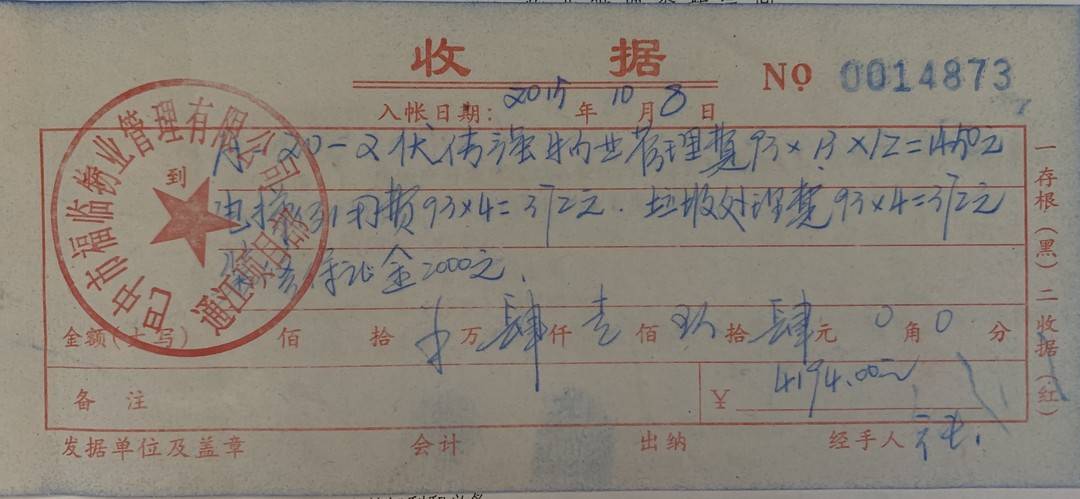 收 据
NO 0014873
入帐日期: 2015 年 10 月 8 日
巴中市福临物业管理有限公司
通江项目部
到
20-2 伏 强 物业管理费 93×1.3×12=1450元
费93×4=372元. 垃圾处理费 93×4=372元
保证金2000元.
金额(大写) 佰 拾 万 肆 仟 壹 佰 玖 拾 肆 元 0 角 0 分
备 注
¥ 4194.00元
发据单位及盖章 会计 出纳 经手人
一存根(黑)二收据(红)